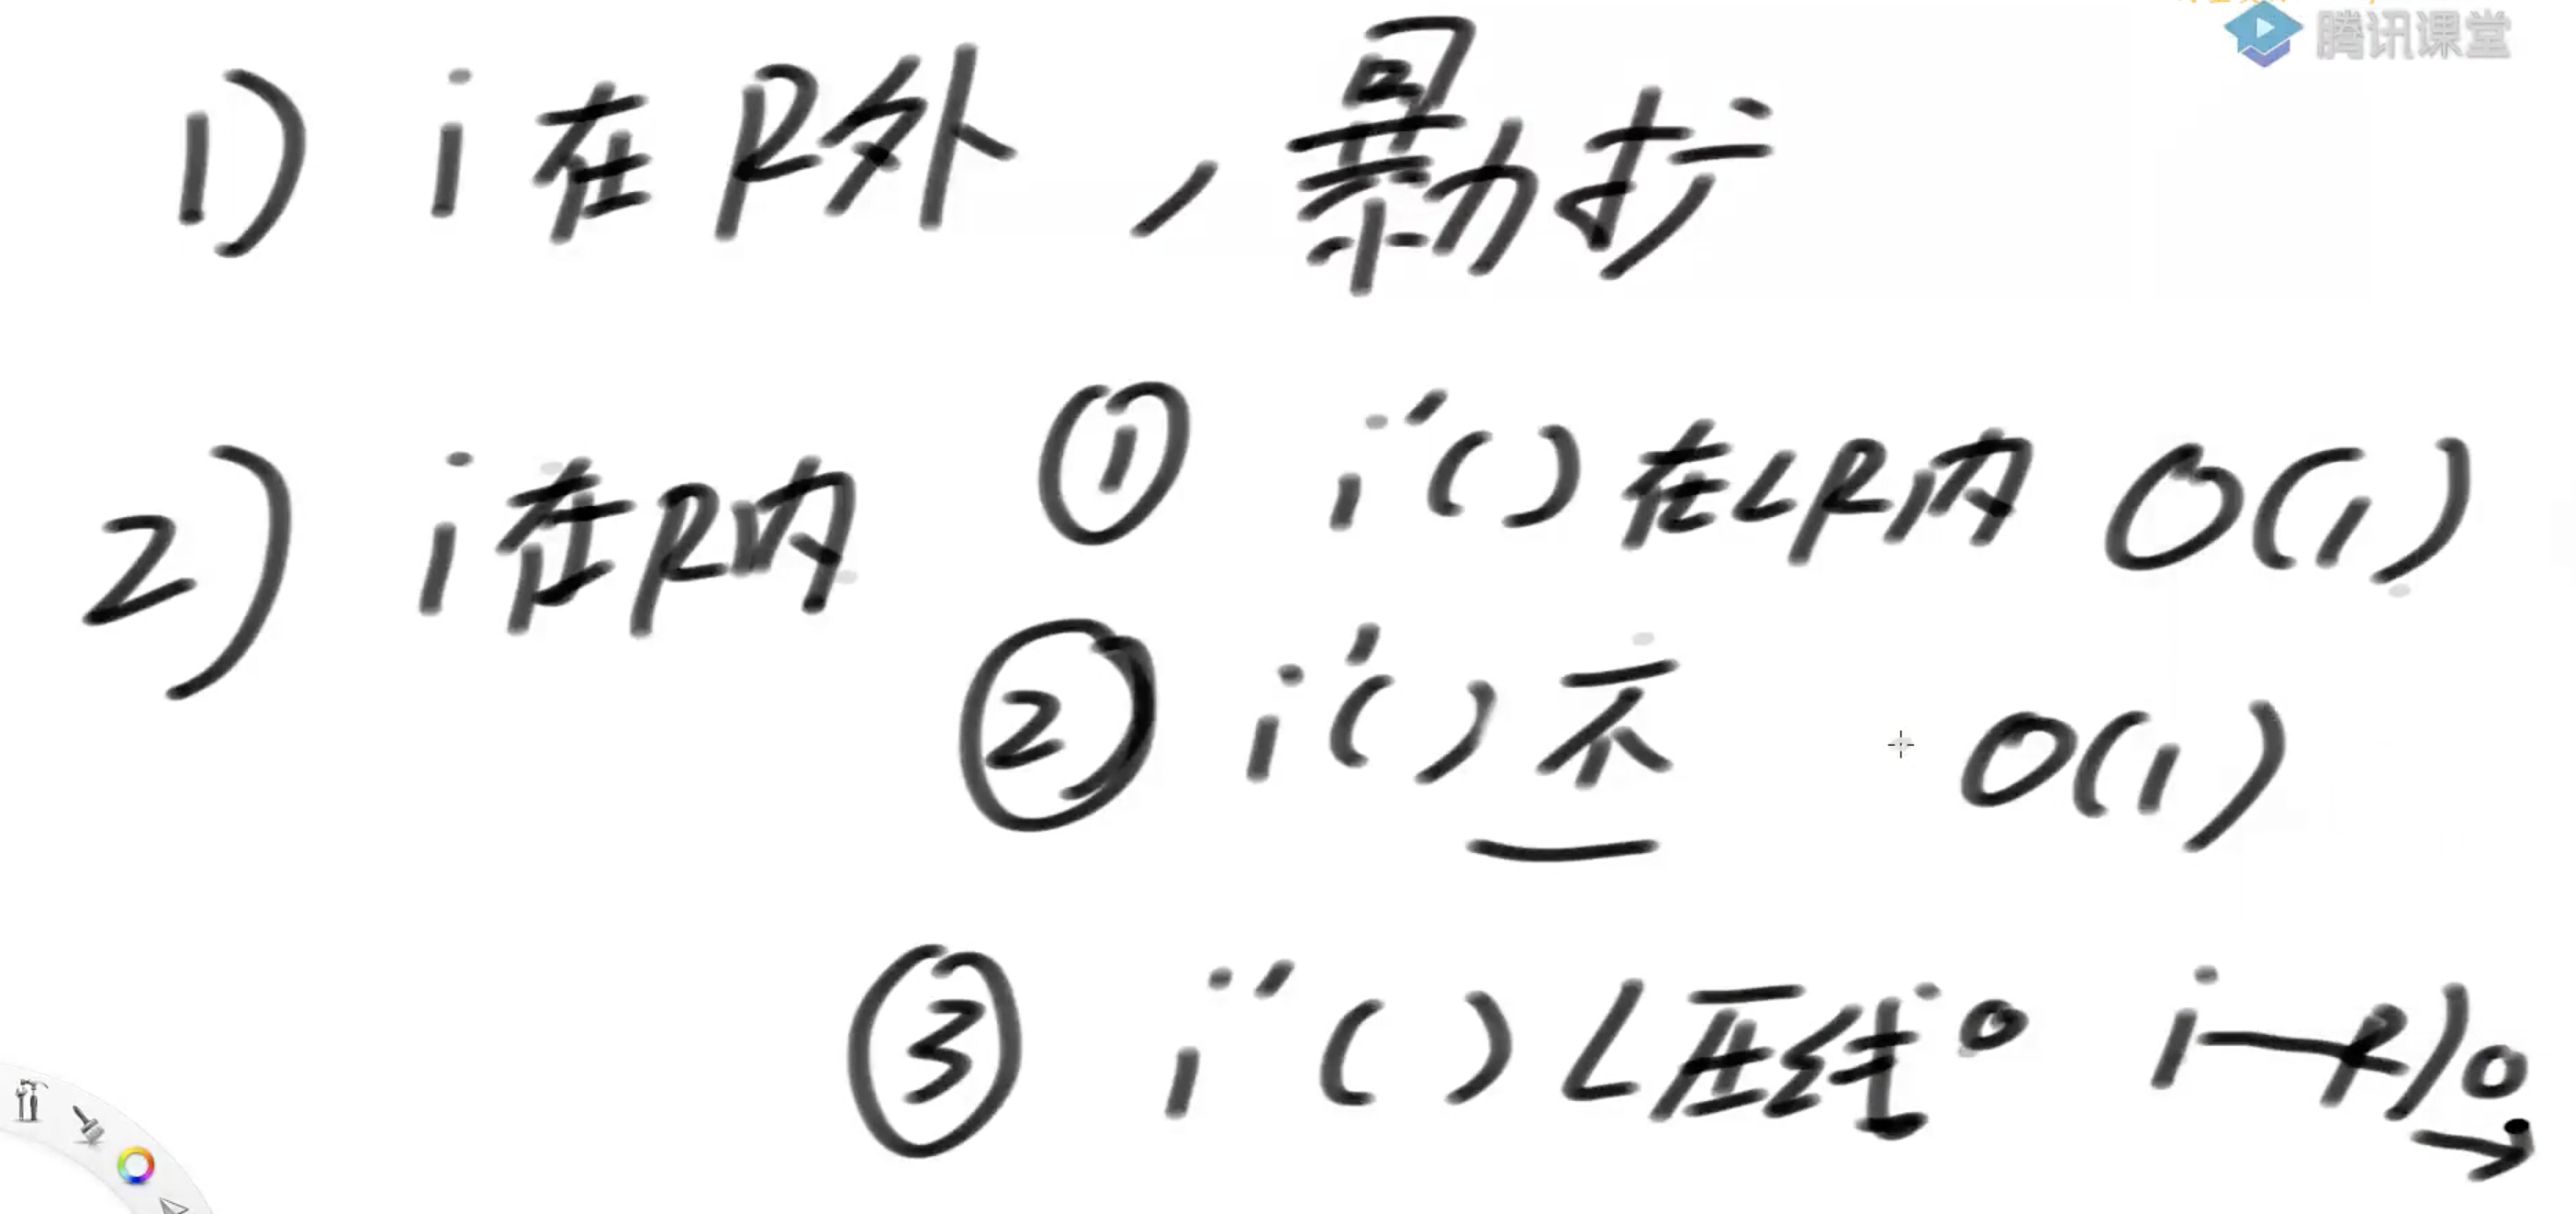 腾讯课堂
1) i在R外，暴力扩
2) i在R内 ① i'( )在LR内 O(1)
② i'( )不 O(1)
③ i'( ) L压线。 i—R)。→